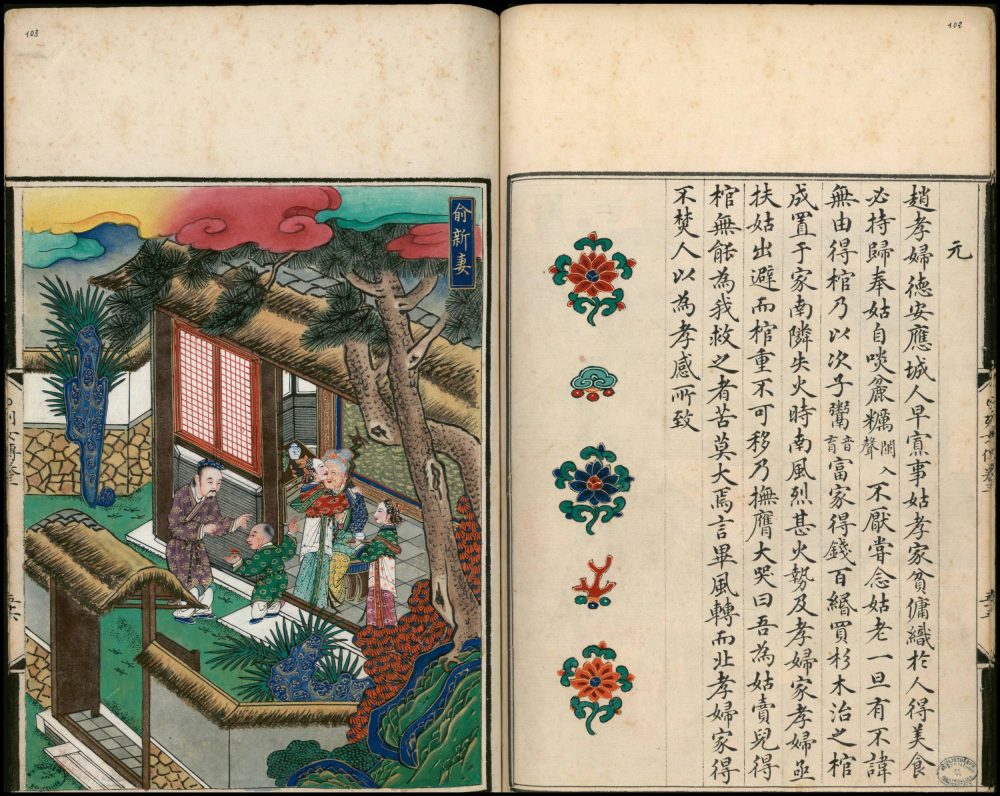 102
元
趙孝婦德安應城人早寡事姑孝家貧傭織於人得美食
必持歸奉姑自啖麄糲闌入聲不厭嘗念姑老一旦有不諱
無由得棺乃以次子鬻音育富家得錢百緡買杉木治之棺
成置于家南隣失火時南風烈甚火勢及孝婦家孝婦亟
扶姑出避而棺重不可移乃撫膺大哭曰吾為姑賣兒得
棺無能為我救之者苦莫大焉言畢風轉而北孝婦家得
不焚人以為孝感所致
103
俞新妻